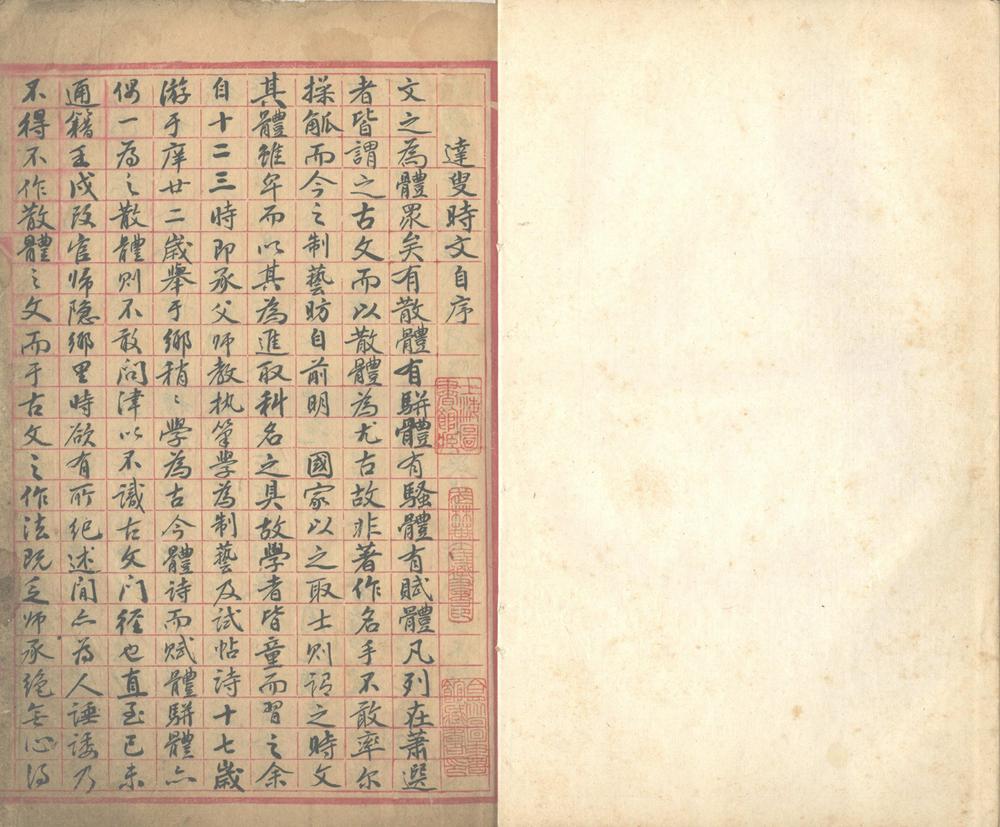 達叟時文自序
文之為體眾矣有散體有駢體有騷體有賦體凡列在蕭選
者皆謂之古文而以散體為尤古故非著作名手不敢率尔
操觚而今之制藝昉自前明 國家以之取士則謂之時文
其體雖卑而以其為進取科名之具故學者皆童而習之余
自十二三時即承父師教执筆學為制藝及试帖诗十七歲
游于庠廿二歲舉于鄉稍〻學為古今體詩而賦體駢體亦
偶一為之散體則不敢问津以不識古文门徑也直至已未
通籍壬戌改官歸隐鄉里時欲有所纪述间亦為人諈諉乃
不得不作散體之文而于古文之作法既乏师承絶無心得
上海圖書館藏